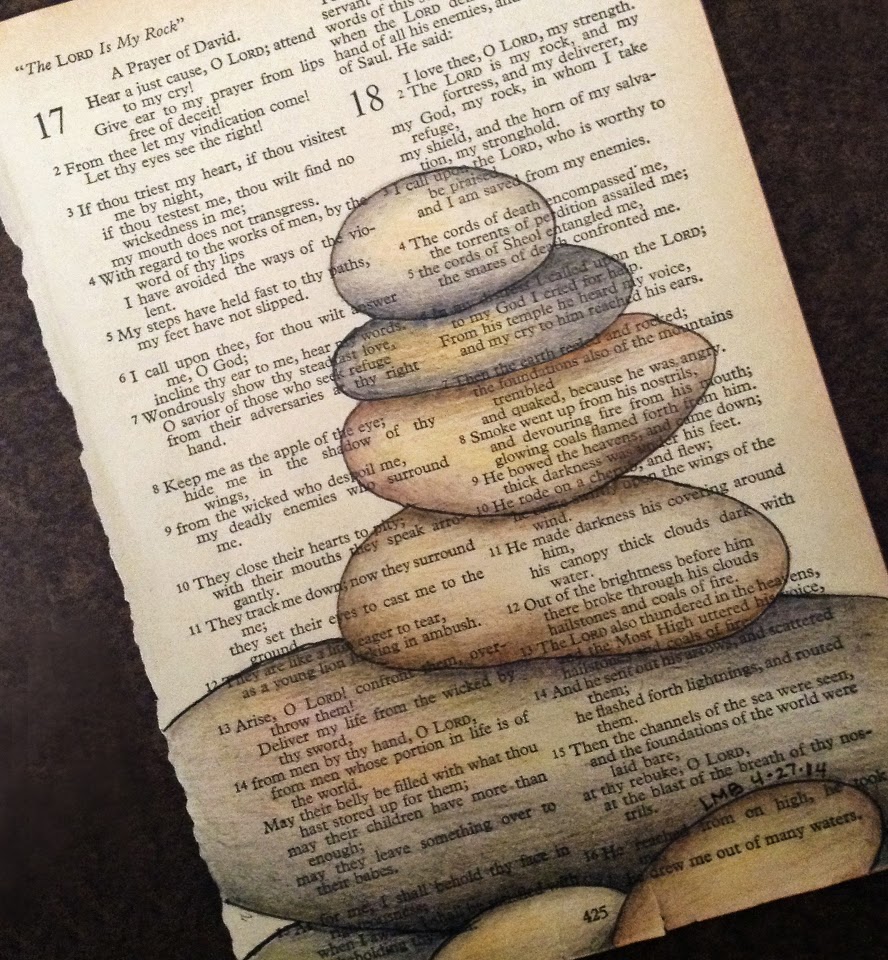 "The LORD Is My Rock"
A Prayer of David.
17 Hear a just cause, O LORD; attend
to my cry!
Give ear to my prayer from lips
free of deceit!
2 From thee let my vindication come!
Let thy eyes see the right!
3 If thou triest my heart, if thou visitest
me by night,
if thou testest me, thou wilt find no
wickedness in me;
my mouth does not transgress.
4 With regard to the works of men, by the
word of thy lips
I have avoided the ways of the vio-
lent.
5 My steps have held fast to thy paths,
my feet have not slipped.
6 I call upon thee, for thou wilt answer
me, O God;
incline thy ear to me, hear my words.
7 Wondrously show thy steadfast love,
O savior of those who seek refuge
from their adversaries at thy right
hand.
8 Keep me as the apple of the eye;
hide me in the shadow of thy
wings,
9 from the wicked who despoil me,
my deadly enemies who surround
me.
10 They close their hearts to pity;
with their mouths they speak arro-
gantly.
11 They track me down; now they surround
me;
they set their eyes to cast me to the
ground.
12 They are like a lion eager to tear,
as a young lion lurking in ambush.
13 Arise, O LORD! confront them, over-
throw them!
Deliver my life from the wicked by
thy sword,
14 from men by thy hand, O LORD,
from men whose portion in life is of
the world.
May their belly be filled with what thou
hast stored up for them;
may their children have more than
enough;
may they leave something over to
their babes.
As for me, I shall behold thy face in
when I
servant
words of this
when the LORD
hand of all his enemies, and
of Saul. He said:
18 I love thee, O LORD, my strength.
2 The LORD is my rock, and my
fortress, and my deliverer,
my God, my rock, in whom I take
refuge,
my shield, and the horn of my salva-
tion, my stronghold.
3 I call upon the LORD, who is worthy to
be praised,
and I am saved from my enemies.
4 The cords of death encompassed me,
the torrents of perdition assailed me;
5 the cords of Sheol entangled me,
the snares of death confronted me.
called upon the LORD;
to my God I cried for help.
From his temple he heard my voice,
and my cry to him reached his ears.
7 Then the earth reeled and rocked;
the foundations also of the mountains
trembled
and quaked, because he was angry.
8 Smoke went up from his nostrils,
and devouring fire from his mouth;
glowing coals flamed forth from him.
9 He bowed the heavens, and came down;
thick darkness was under his feet.
10 He rode on a cherub, and flew;
upon the wings of the
wind.
11 He made darkness his covering around
him,
his canopy thick clouds dark with
water.
12 Out of the brightness before him
there broke through his clouds
hailstones and coals of fire.
13 The LORD also thundered in the heavens,
and the Most High uttered his voice,
hailstones and coals of fire.
14 And he sent out his arrows, and scattered
them;
he flashed forth lightnings, and routed
them.
15 Then the channels of the sea were seen,
and the foundations of the world were
laid bare,
at thy rebuke, O LORD,
at the blast of the breath of thy nos-
trils.
LMB 4-27-14
16 He reached from on high, he took
he drew me out of many waters.
425